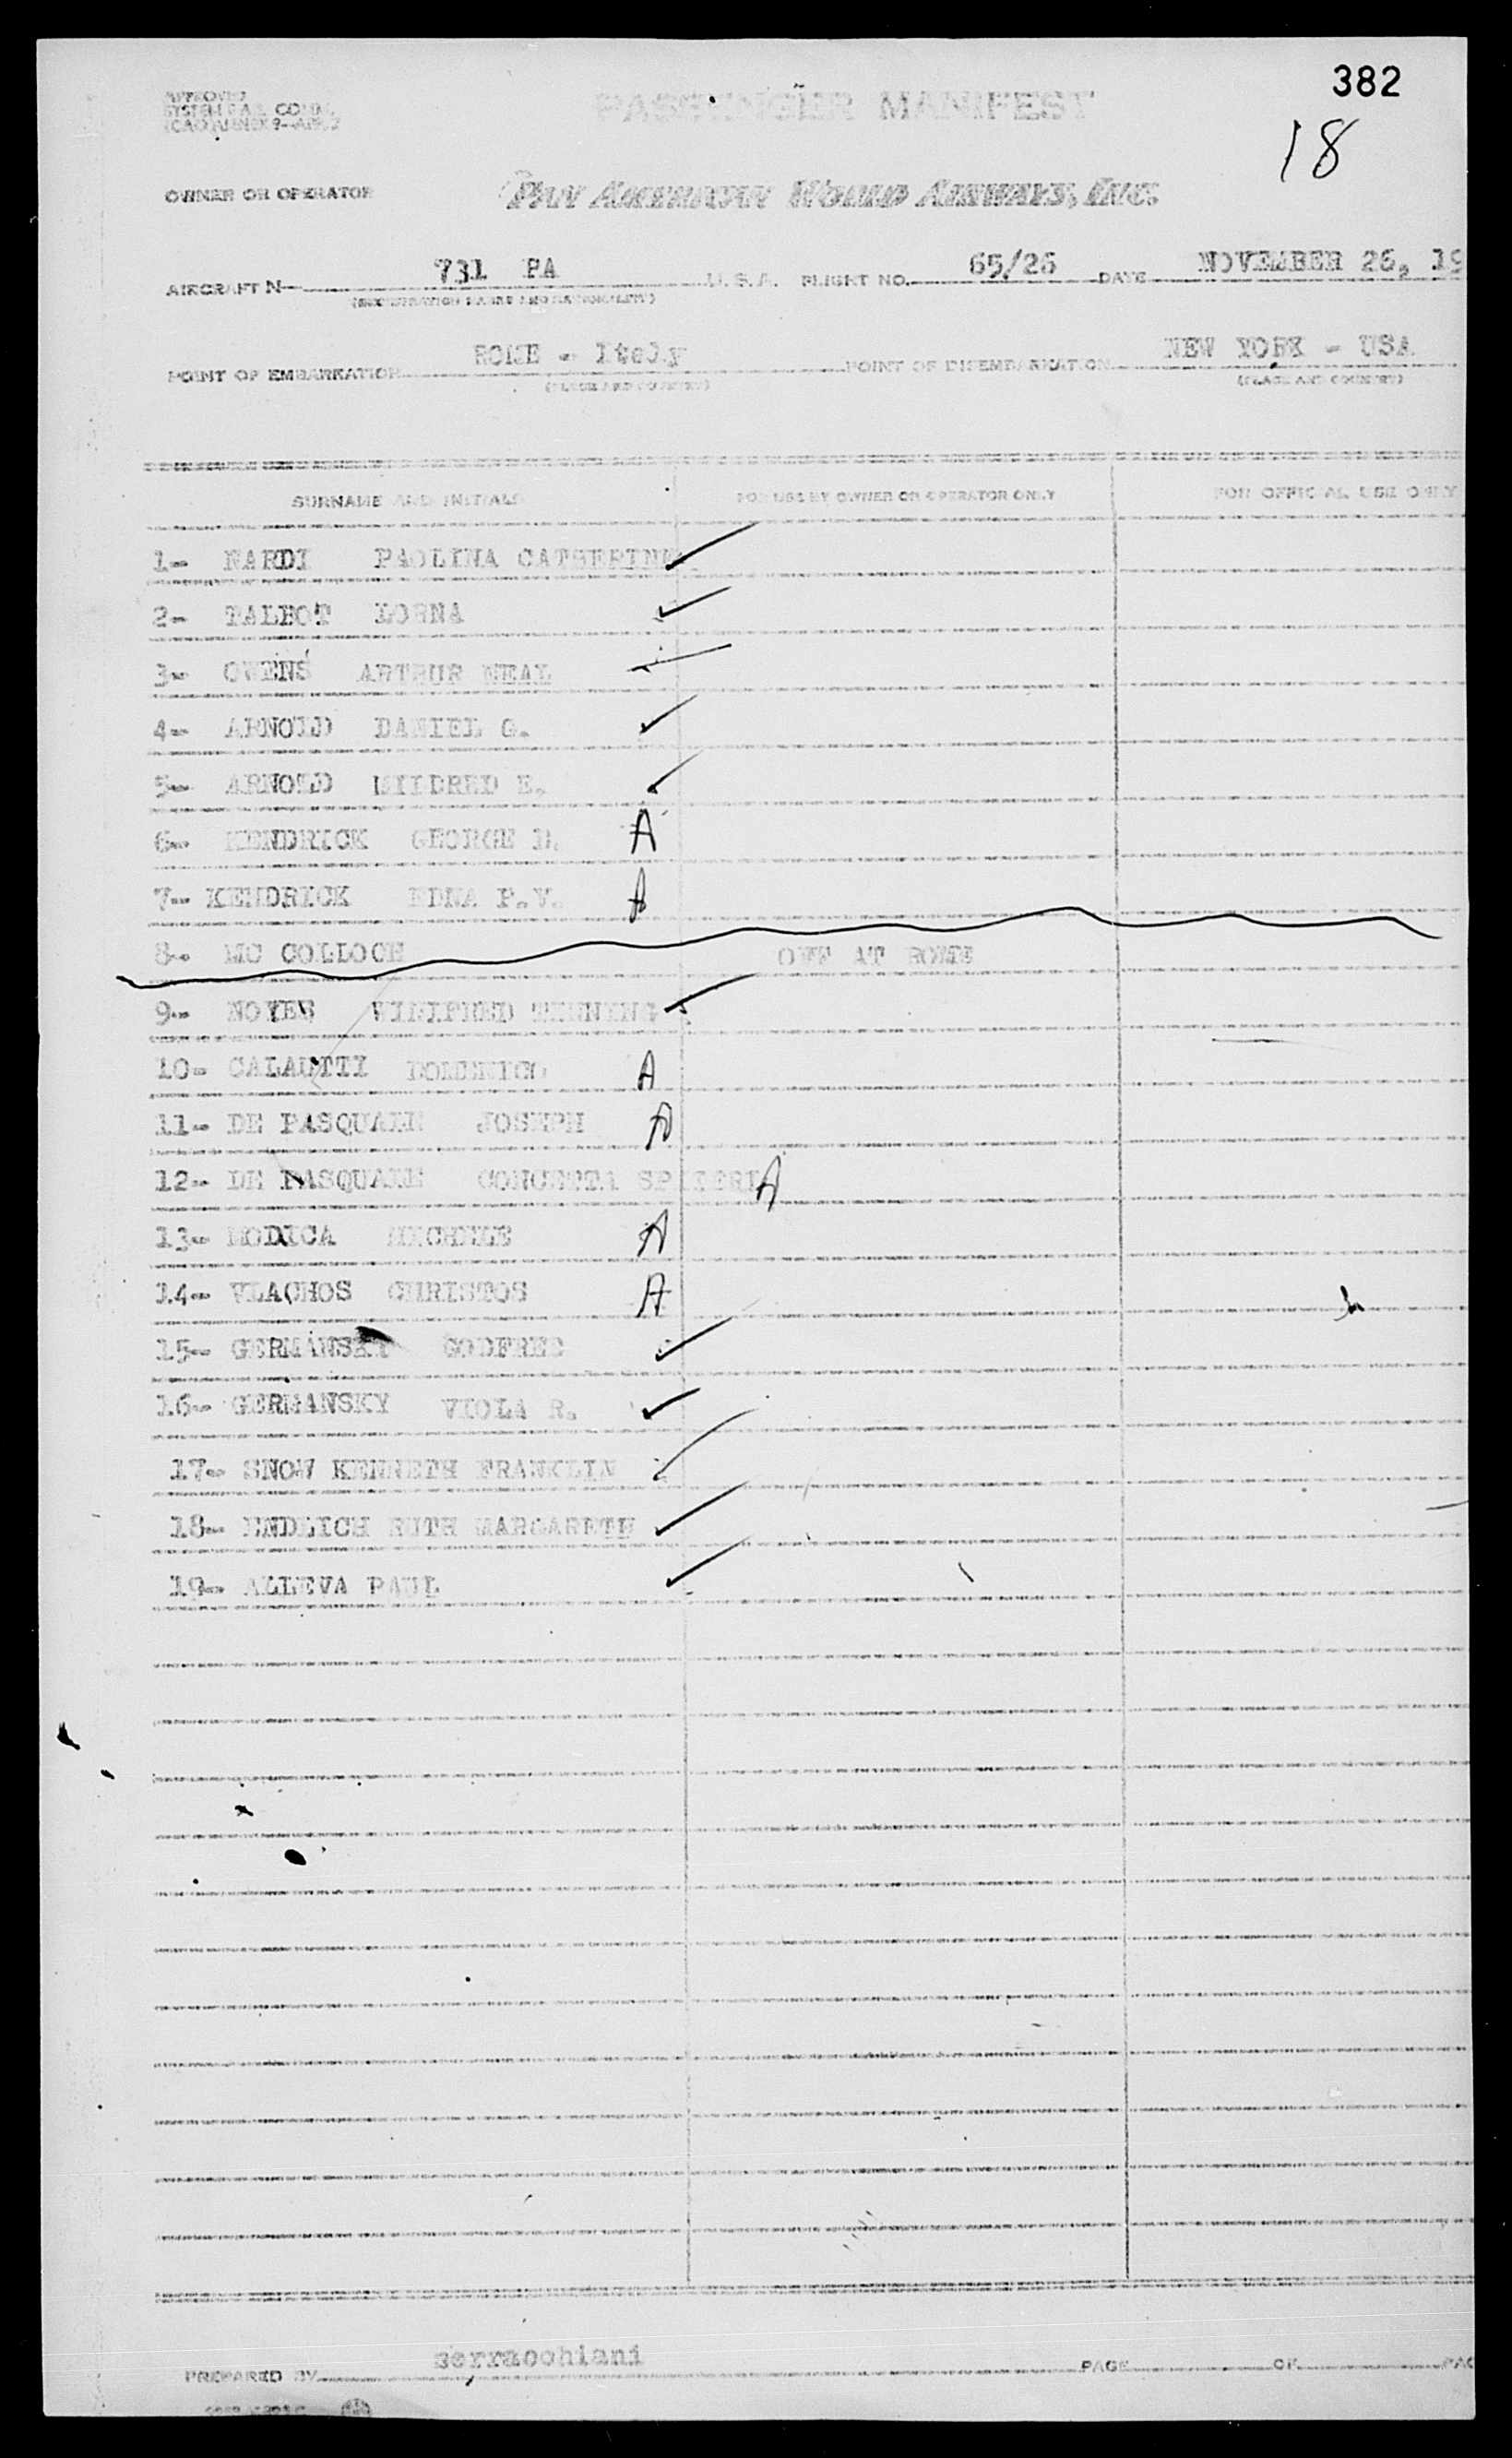 382
APPROVED
PASSENGER MANIFEST
18
OWNER OR OPERATOR PAN AMERICAN WORLD AIRWAYS, INC.
AIRCRAFT N 731 PA U.S.A. FLIGHT NO. 65/26 DATE NOVEMBER 26, 19
POINT OF EMBARKATION ROME - Italy POINT OF DISEMBARKATION NEW YORK - USA
(PLACE AND COUNTRY) (PLACE AND COUNTRY)
SURNAME AND INITIALS FOR USE BY OWNER OR OPERATOR ONLY FOR OFFICIAL USE ONLY
1- NARDI PAOLINA CATHERINE
2- TALBOT LORNA
3- OWENS ARTHUR NEAL
4- ARNOLD DANIEL G.
5- ARNOLD MILDRED E.
6- KENDRICK GEORGE A
7- KENDRICK EDNA P.V. A
8- MC COLLOCH OFF AT ROME
9- NOYES WINIFRED
10- CALAUTTI DOMENICO A
11- DE PASQUALE JOSEPH A
12- DE PASQUALE CONCETTA SPITERI A
13- MODICA MICHELE A
14- VLACHOS CHRISTOS A
15- GERMANSKY
16- GERMANSKY VIOLA R.
17- SNOW KENNETH FRANKLIN
18- ENDLICH RUTH MARGARETE
19- ALLEVA PAUL
PREPARED BY Serracchiani PAGE OF